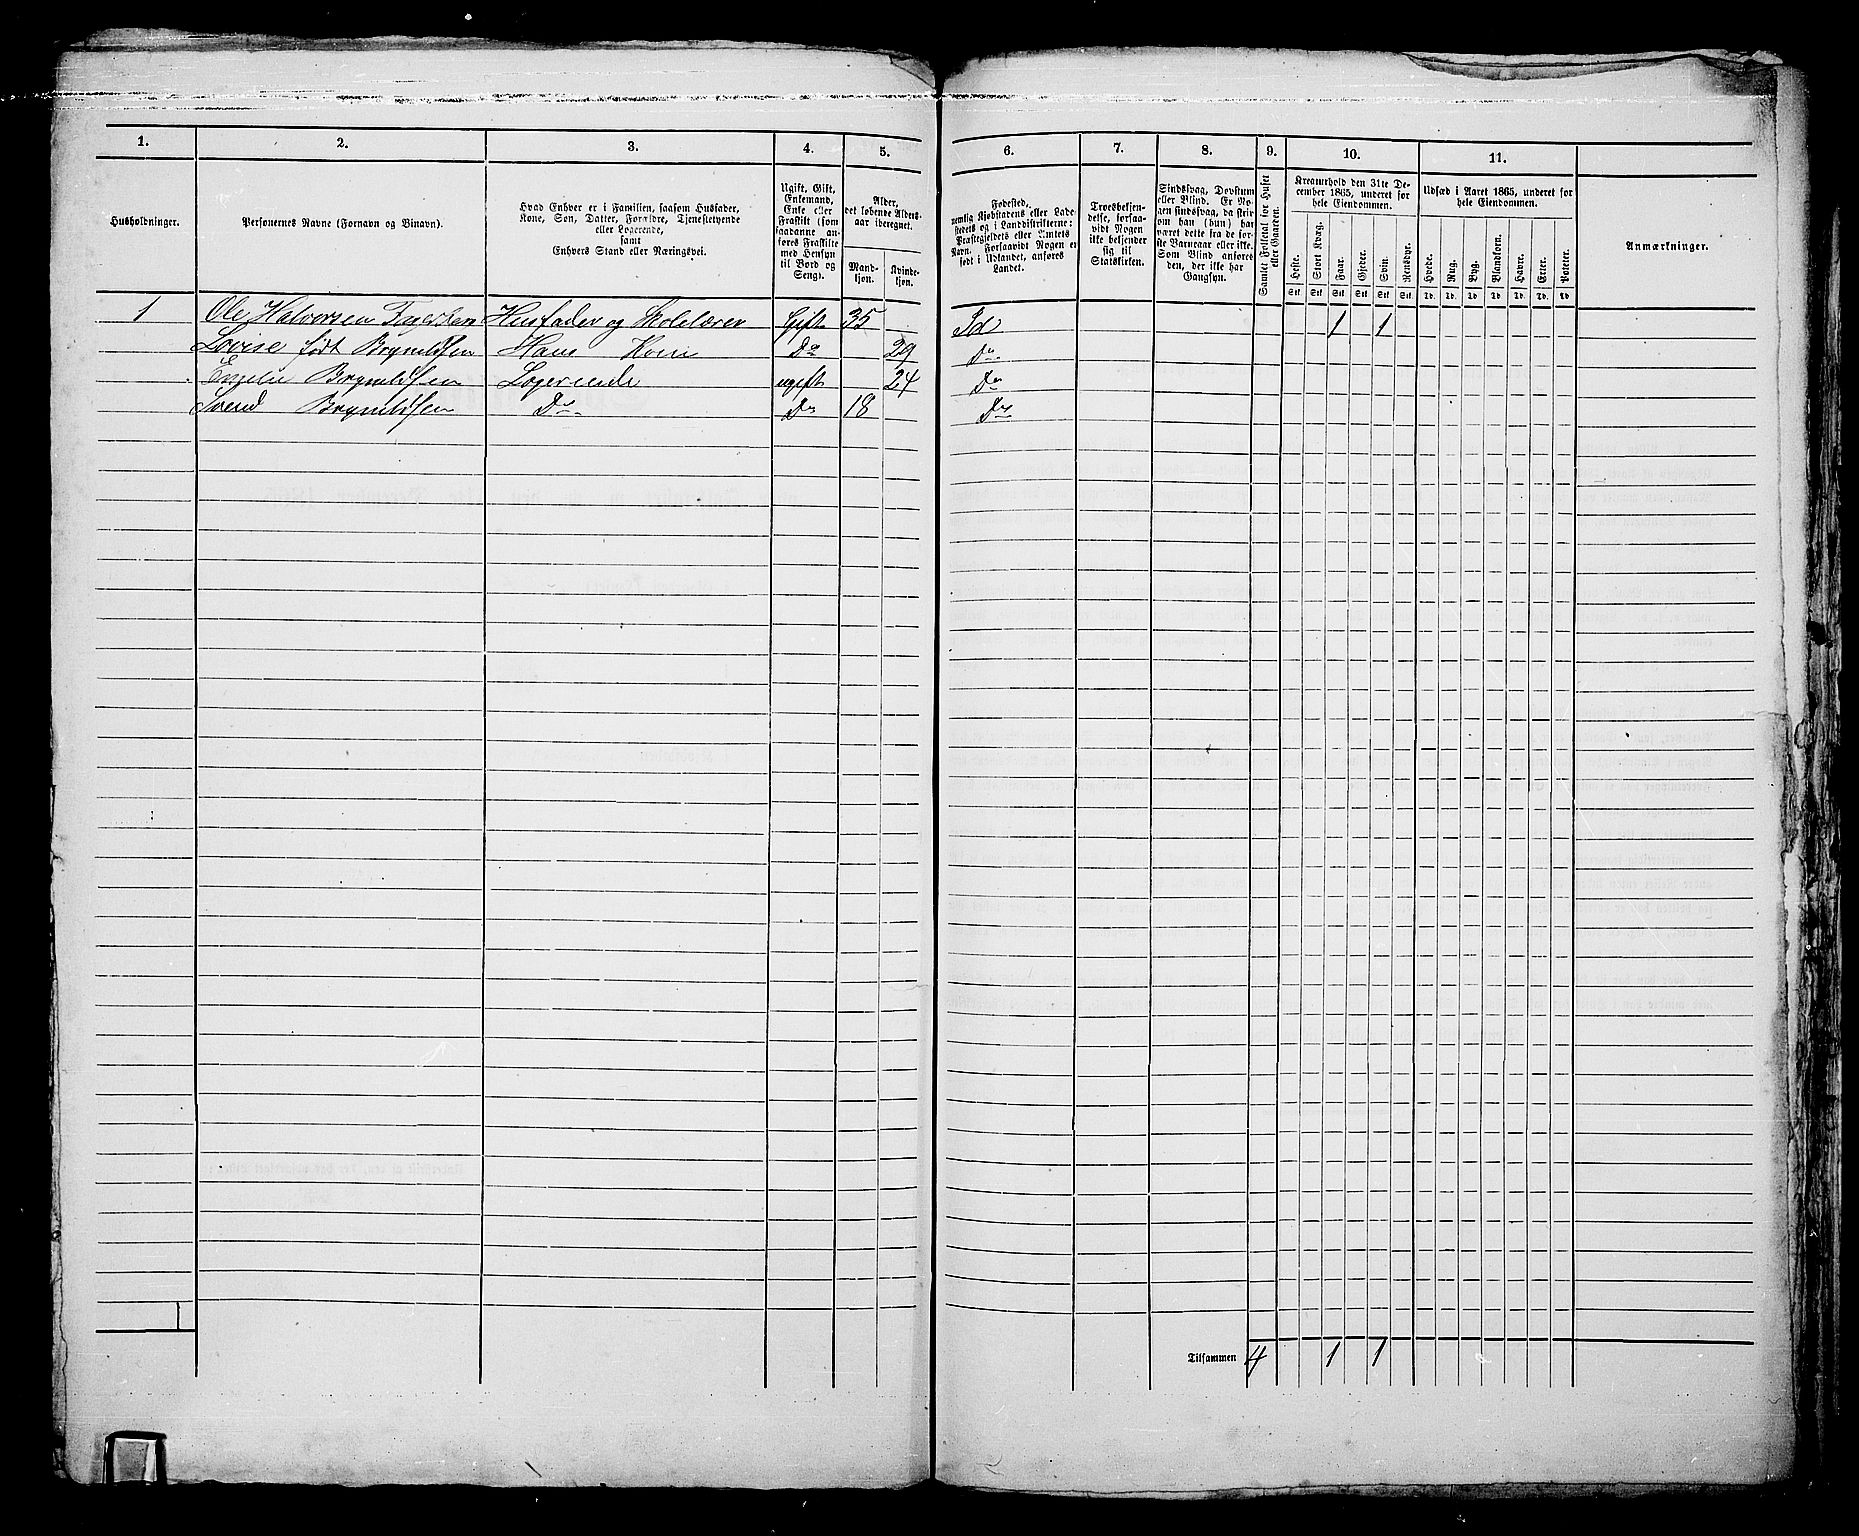 1. 2. 3. 4. 5. 6. 7. 8. 9. 10. 11.
Husholdninger.
Personernes Navne (Fornavn og Binavn).
Hvad Enhver er i Familien, saasom Husfader,
Kone, Søn, Datter, Forældre, Tjenestetyende
eller Logerende,
samt
Enhvers Stand eller Næringsvei.
Ugift, Gift,
Enkemand,
Enke eller
Fraskilt (som
saadanne an-
føres Fraskilte
med Hensyn
til Bord og
Seng).
Alder,
det løbende Alders-
aar iberegnet.
Mand-
kjøn.
Kvinde-
kjøn.
Fødested,
nemlig Kjøbstadens eller Lade-
stedets og i Landdistrikterne:
Præstegjeldets eller Amtets
Navn. Forsaavidt Nogen er
født i Udlandet, anføres
Landet.
Troesbekjen-
delse, forsaa-
vidt Nogen
ikke bekjender
sig til
Statskirken.
Sindssvag, Døvstum
eller Blind. Er No-
gen sindssvag, da skri-
ves om han (hun) har
været dette fra de før-
ste Barneaar eller ikke.
Som Blind anføres
den, der ikke har
Gangsyn.
Samlet Folketal for Huset
eller Gaarden.
Kreaturhold den 31te De-
cember 1865, underet for
hele Eiendommen.
Heste. Stort Kvæg. Faar. Gjeder. Svin. Rensdyr.
Stk. Stk. Stk. Stk. Stk. Stk.
Udsæd i Aaret 1865, underet for
hele Eiendommen.
Hvede. Rug. Byg. Blandkorn. Havre. Erter. Poteter.
Td. Td. Td. Td. Td. Td. Td.
Anmærkninger.
1 Ole Halvorsen Husfader og Skolelærer Gift 35 Id 1 1
Lovise født Brynildsen Hans Kone Do 29 Do
Brynildsen Logerende ugift 24 Do
Svend Brynildsen Do Do 18 Do
Tilsammen 4 1 1